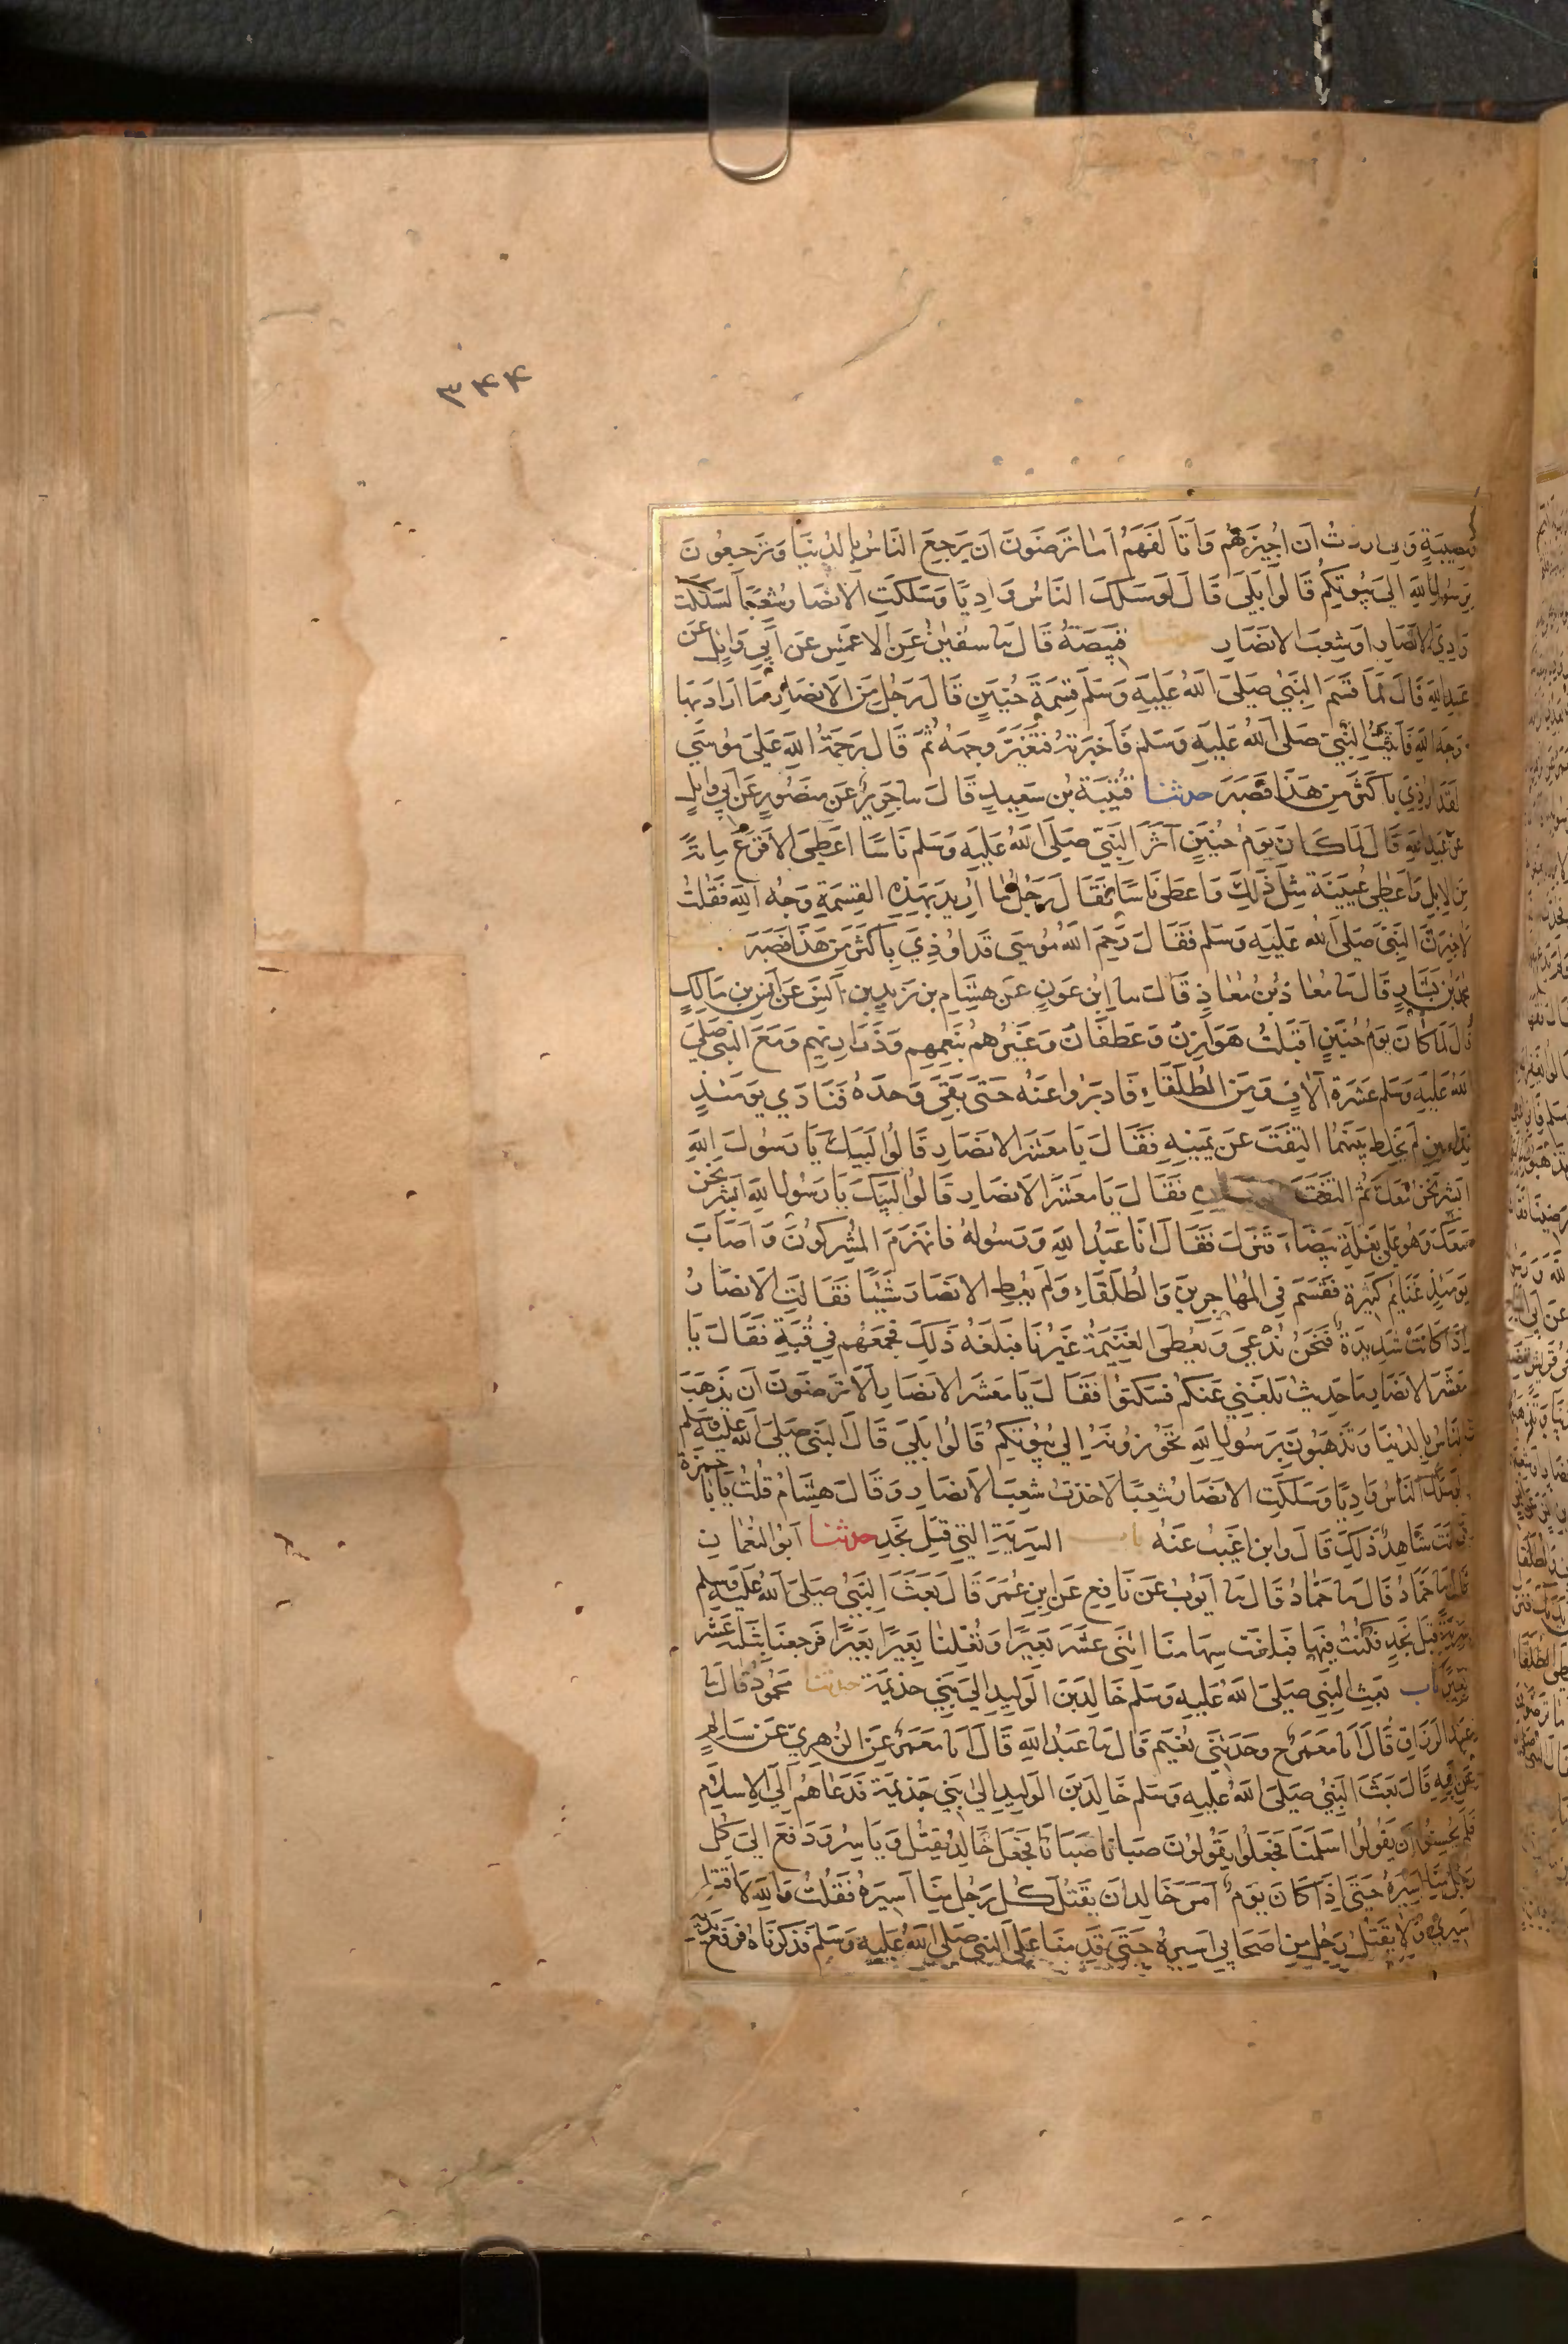 ۳۴۴
ومصيبة واني اردت ان اجيزهم واتالفهم اما ترضون ان يرجع الناس بالدنيا وترجعون
برسول الله الي بيوتكم قالوا بلي قال لو سلك الناس واديا وسلكت الانصار شعبا لسلكت
وادي الانصار او شعب الانصار حدثنا قبيصة قال نا سفين عن الاعمش عن ابي وايل عن
عبد الله قال لما قسم النبي صلي الله عليه وسلم قسمة حنين قال رجل من الانصار ما اراد بها
وجه الله فاتيت النبي صلي الله عليه وسلم فاخبرته فتغير وجهه ثم قال رحمة الله علي موسي
لقد اوذي باكثر من هذا فصبر حدثنا قتيبة بن سعيد قال نا جرير عن منصور عن ابي وايل
عن عبد الله قال لما كان يوم حنين آثر النبي صلي الله عليه وسلم ناسا اعطي الاقرع ماية
من الابل واعطي عيينة مثل ذلك واعطي ناسا فقال رجل ما اريد بهذه القسمة وجه الله فقلت
لاخبرن النبي صلي الله عليه وسلم فقال رحم الله موسي قد اوذي باكثر من هذا فصبر
محمد بن بشار قال نا معاذ بن معاذ قال نا ابن عون عن هشام بن زيد بن انس عن انس بن مالك
قال لما كان يوم حنين اقبلت هوازن وغطفان وغيرهم بنعمهم وذراريهم ومع النبي صلي
الله عليه وسلم عشرة آلاف ومن الطلقاء فادبروا عنه حتي بقي وحده فنادي يومئذ
نداءين لم يخلط بينهما التفت عن يمينه فقال يا معشر الانصار قالوا لبيك يا رسول الله
ابشر نحن معك ثم التفت عن يساره فقال يا معشر الانصار قالوا لبيك يا رسول الله ابشر نحن
معك وهو علي بغلة بيضاء فنزل فقال انا عبد الله ورسوله فانهزم المشركون واصاب
يومئذ غنايم كثيرة فقسم في المهاجرين والطلقاء ولم يعط الانصار شيئا فقالت الانصار
اذا كانت شديدة فنحن ندعي ويعطي الغنيمة غيرنا فبلغه ذلك فجمعهم في قبة فقال يا
معشر الانصار ما حديث بلغني عنكم فسكتوا فقال يا معشر الانصار الا ترضون ان يذهب
الناس بالدنيا وتذهبون برسول الله تحوزونه الي بيوتكم قالوا بلي قال النبي صلي الله عليه وسلم
لو سلك الناس واديا وسلكت الانصار شعبا لاخذت شعب الانصار وقال هشام قلت يا با حمزة
وانت شاهد ذلك قال واين اغيب عنه باب السرية التي قبل نجد حدثنا ابو النعمان
قال نا حماد قال نا حماد قال نا ايوب عن نافع عن ابن عمر قال بعث النبي صلي الله عليه وسلم
سرية قبل نجد فكنت فيها فبلغت سهامنا اثني عشر بعيرا ونفلنا بعيرا بعيرا فرجعنا بثلثة عشر
بعيرا باب بعث النبي صلي الله عليه وسلم خالد بن الوليد الي بني جذيمة حدثنا محمود قال نا
عبد الرزاق قال انا معمر ح وحدثني نعيم قال نا عبد الله قال انا معمر عن الزهري عن سالم
عن ابيه قال بعث النبي صلي الله عليه وسلم خالد بن الوليد الي بني جذيمة فدعاهم الي الاسلام
فلم يحسنوا ان يقولوا اسلمنا فجعلوا يقولون صبانا صبانا فجعل خالد يقتل وياسر ودفع الي كل
رجل منا اسيره حتي اذا كان يوم امر خالد ان يقتل كل رجل منا اسيره فقلت والله لا اقتل
اسيري ولا يقتل رجل من اصحابي اسيره حتي قدمنا علي النبي صلي الله عليه وسلم فذكرناه فرفع يديه